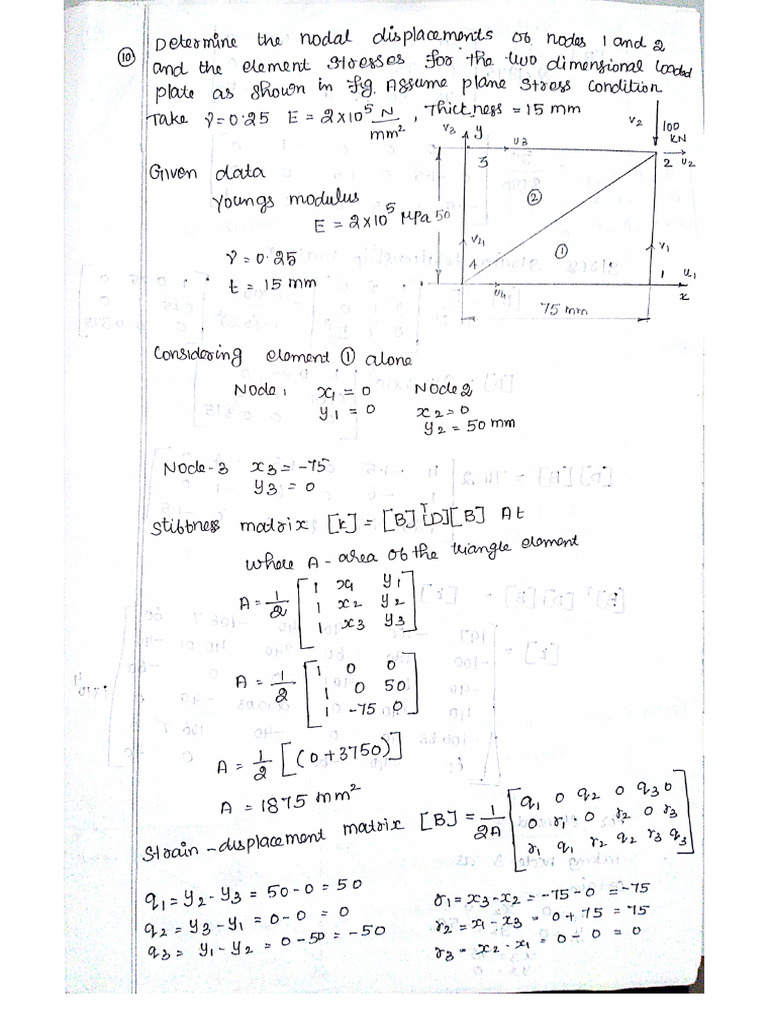 10 Determine the nodal displacements of nodes 1 and 2
and the element stresses for the two dimensional loaded
plate as shown in fig. Assume plane stress condition
Take γ=0.25 E = 2×10⁵ N/mm², Thickness = 15 mm
v3 y u3 v2 100 KN
3 2 u2
Given data
Youngs modulus
E = 2×10⁵ MPa
50
②
γ = 0.25
v4 ① v1
t = 15 mm
4 u4 1 u1
x
75 mm
Considering element ① alone
Node 1 x1 = 0 Node 2
y1 = 0 x2 = 0
y2 = 50 mm
Node-3 x3 = -75
y3 = 0
Stiffness matrix [k] = [B]ᵀ[D][B] At
where A - area of the triangle element
A = 1/2 [1 x1 y1
1 x2 y2
1 x3 y3]
A = 1/2 [1 0 0
1 0 50
1 -75 0]
A = 1/2 [(0+3750)]
A = 1875 mm²
Strain-displacement matrix [B] = 1/2A [q1 0 q2 0 q3 0
0 r1 0 r2 0 r3
r1 q1 r2 q2 r3 q3]
q1 = y2 - y3 = 50 - 0 = 50
q2 = y3 - y1 = 0 - 0 = 0
q3 = y1 - y2 = 0 - 50 = -50
r1 = x3 - x2 = -75 - 0 = -75
r2 = x1 - x3 = 0 + 75 = 75
r3 = x2 - x1 = 0 - 0 = 0